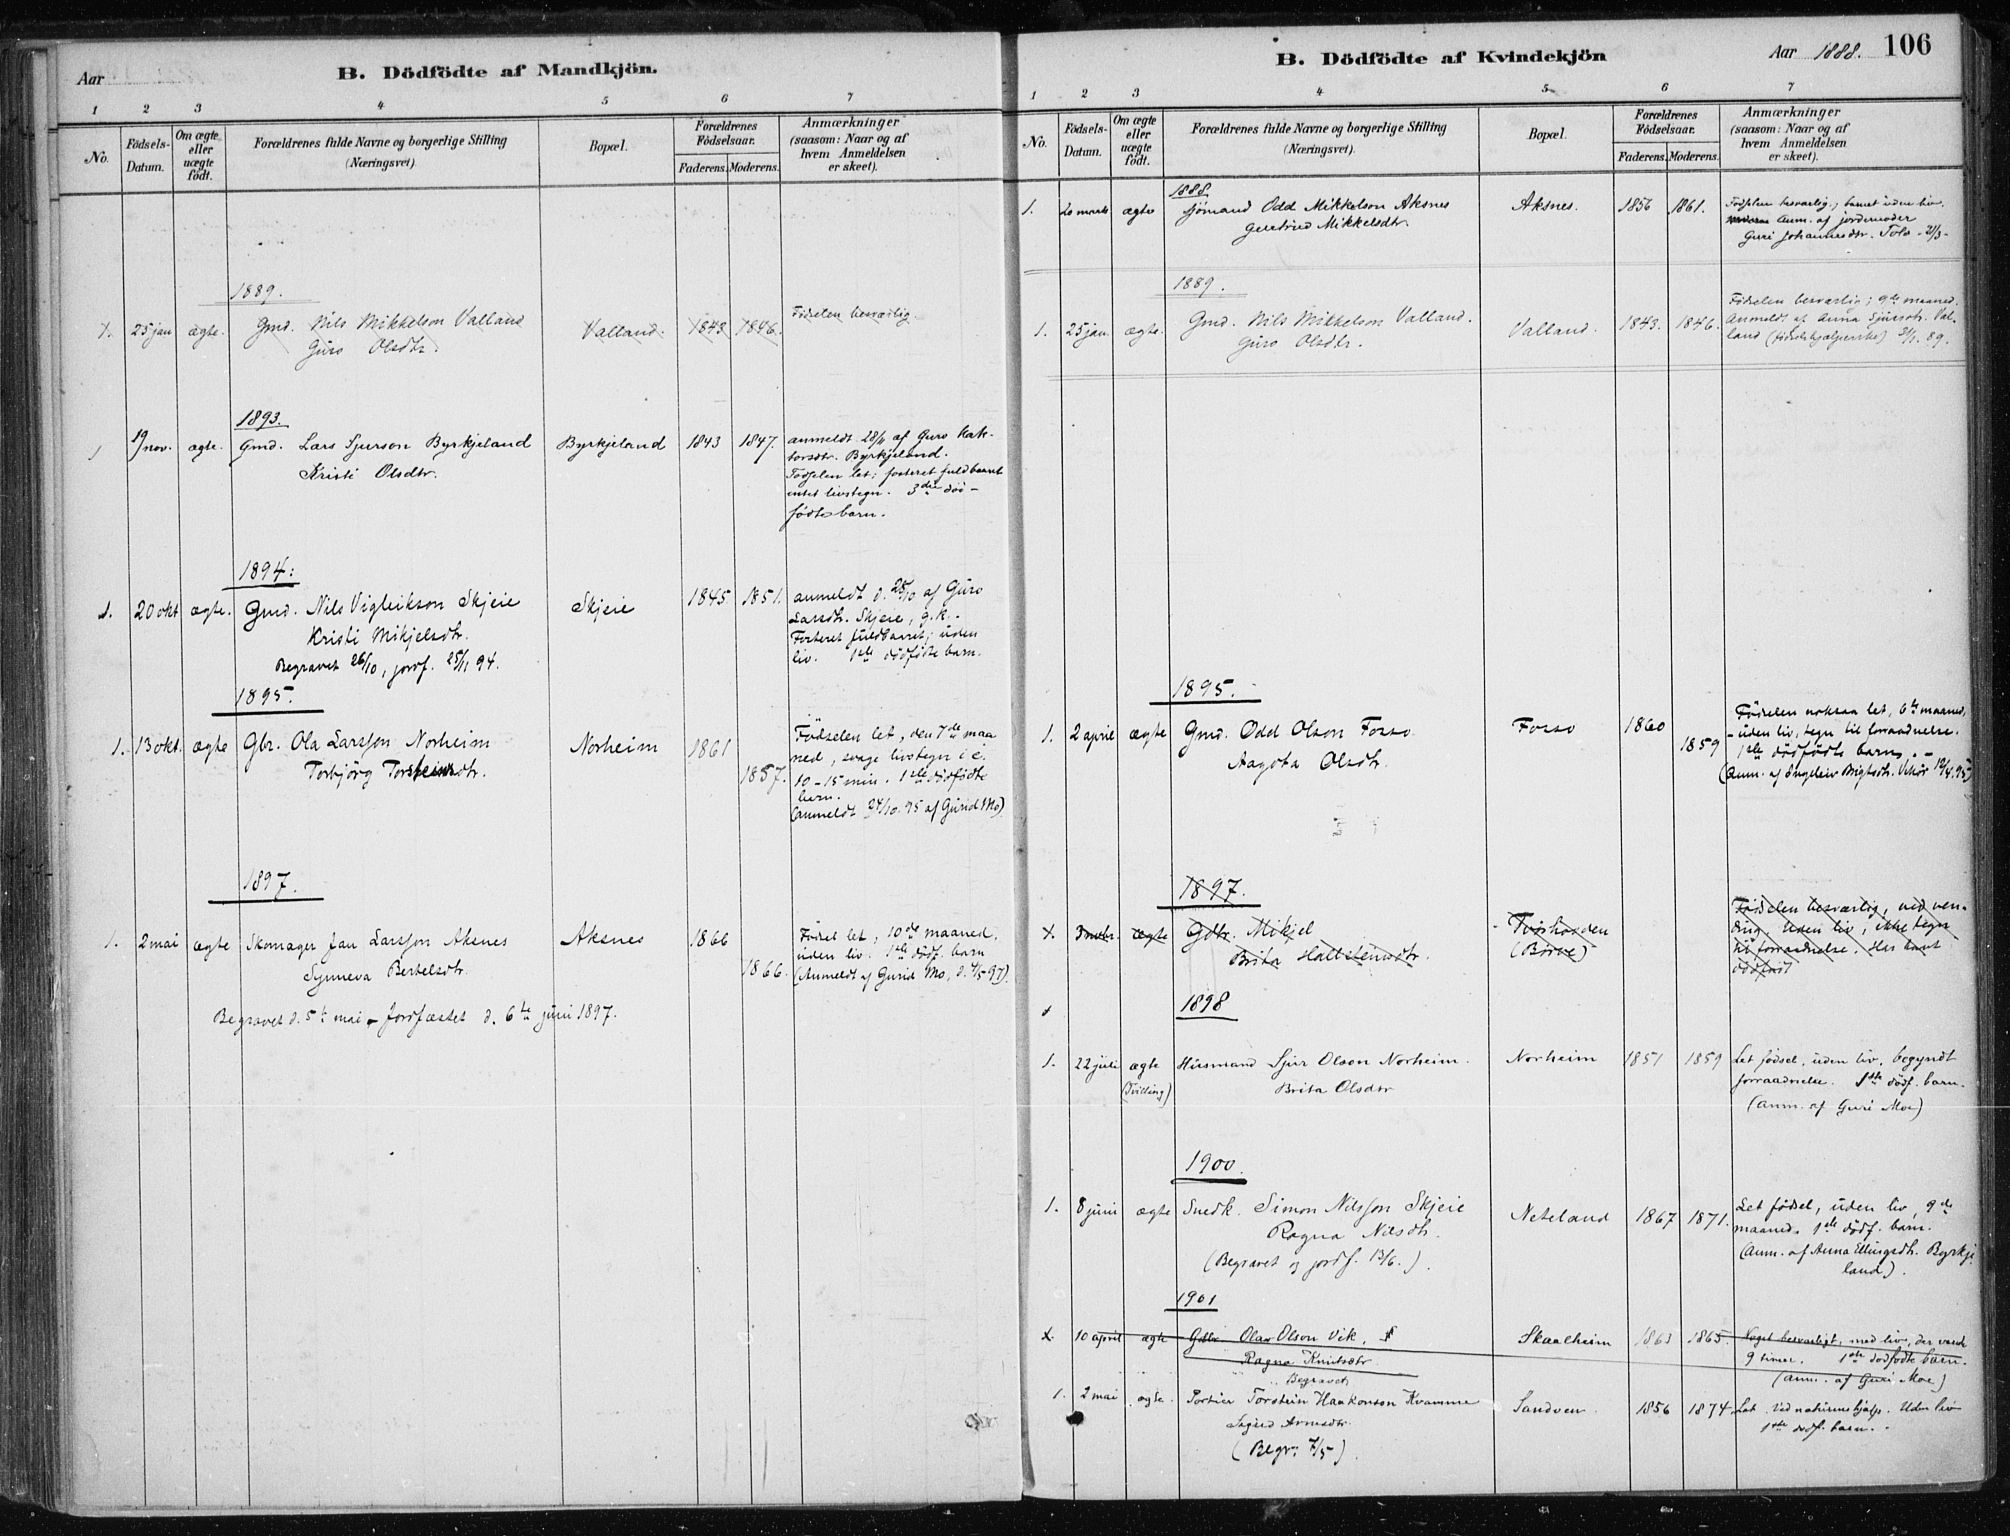 Aar
B. Dödfödte af Mandkjön.
1 2 3 4 5 6 7
No.
Födsels-
Datum.
Om ægte
eller
uægte
födt.
Forældrenes fulde Navne og borgerlige Stilling
(Næringsvei).
Bopæl.
Forældrenes
Födselsaar.
Faderens. Moderens.
Anmærkninger
(saasom: Naar og af
hvem Anmeldelsen
er skeet).
1889.
1. 25 jan ægte. Gmd. Nils Mikkelson Valland Valland. 1843 1846. Fødselen besværlig.
Guro Olsdtr.
1893.
1 19 nov. ægte. Gmd. Lars Sjurson Byrkjeland Byrkjeland 1843 1847. anmeldt 28/11 af Guro Hak-
Kristi Olsdtr.
torsdtr. Byrkjeland.
Fødselen let; fosteret fuldbaaret
intet livstegn. 3die død-
fødte barn.
1894:
1. 20 okt ægte. Gmd. Nils Vigleikson Skjeie Skjeie 1845 1851. anmeldt d. 25/10 af Guro
Kristi Mikjelsdtr.
Larsdtr. Skjeie, g.k.
Fosteret fuldbaaret; uden
liv. 1ste dödfödte barn.
Begravet 26/10, jordf. 25/11 94.
1895.
1. 13 okt. ægte Gbr. Ola Larsson Norheim Norheim 1861 1857.
Torbjörg Torsteinsdtr.
Födselen let, den 7de maa
ned, svage livstegn i c.
10-15 min. 1ste dödfödte
barn.
(anmeldt 24/10.95 af Gurid Mo)
1897.
1. 2 mai ægte Skomager Jan Larsson Aksnes Aksnes 1866 1866.
Synneva Bertelsdtr.
Födsel let, 10de maaned,
uden liv. 1ste dödf. barn
(Anmeldt af Gurid Mo, d. 4/5 97).
Begravet d. 5te mai – Jordfæstet d. 6te juni 1897.
B. Dödfödte af Kvindekjön
Aar 1888. 106
1 2 3 4 5 6 7
No.
Födsels-
Datum.
Om ægte
eller
uægte
födt.
Forældrenes fulde Navne og borgerlige Stilling
(Næringsvei).
Bopæl.
Forældrenes
Födselsaar.
Faderens. Moderens.
Anmærkninger
(saasom: Naar og af
hvem Anmeldelsen
er skeet).
1888.
1. 20 marts ægte Sjömand Odd Mikkelson Aksnes Aksnes. 1856 1861. Fødselen besværlig; barnet uden liv.
Gertrud Mikkelsdtr.
Anm. af jordemoder
Guri Johannesdtr. Tolo 21/3
1889.
1. 25 jan. ægte. Gmd. Nils Mikkelson Valland. Valland. 1843. 1846. Fødselen besværlig; 9de maaned.
Guro Olsdtr.
Anmeldt af Anna Sjursdtr. Val-
land (fødselshjælperske) 31/1. 89.
1895.
1. 2 april ægte Gmd. Odd Olson Fosso Fosso 1860 1859
Aagota Olsdtr.
Födselen noksaa let, 6te maaned,
- uden liv, tegn til forraadnelse.
1ste dödfödte barn. -
(Anm. af Ingeleiv Brigtsdtr. Vikör 12/4 95)
1897.
1. ægte Gdbr. Mikjel
Brita Hallsteinsdtr.
(Börve)
Födselen besværlig, ved ven-
ding. Uden liv, ikke tegn
til forraadnelse. Har havt
dödfødt
1898
1. 22 juli ægte Husmand Sjur Olson Norheim. Norheim 1851 1859 Let födsel, uden liv, begyndt
(Tvilling) Brita Olsdtr
forraadnelse. 1ste dödf. barn.
(Anm. af Guri Moe)
1900.
1. 8 juni ægte Snedk. Simon Nilsson Skjeie Neteland 1867 1871. Let födsel, uden liv, 9de
Ragna Nilsdtr.
maaned. 1ste dödf. barn.
(Begravet og jordf. 13/6.)
(Anm. af Anna Ellingsdtr. Byrkje
land).
1901
10 april ægte Gdbr Olav Olson Vik. Skaalheim 1863 1865 Noget besværligt, med liv, der varede
Ragna Knutsdtr
9 timer. 1ste dödfödte barn.
(Anm. af Guri Moe)
Begravet
1. 2 mai ægte. Portier Torstein Haakonson Kvamme Sandven 1856 1874 Let. Ved naturens hjælp. Uden liv
Sigrid Arnesdtr.
1ste dödf. barn.
(Begr: 7/5)